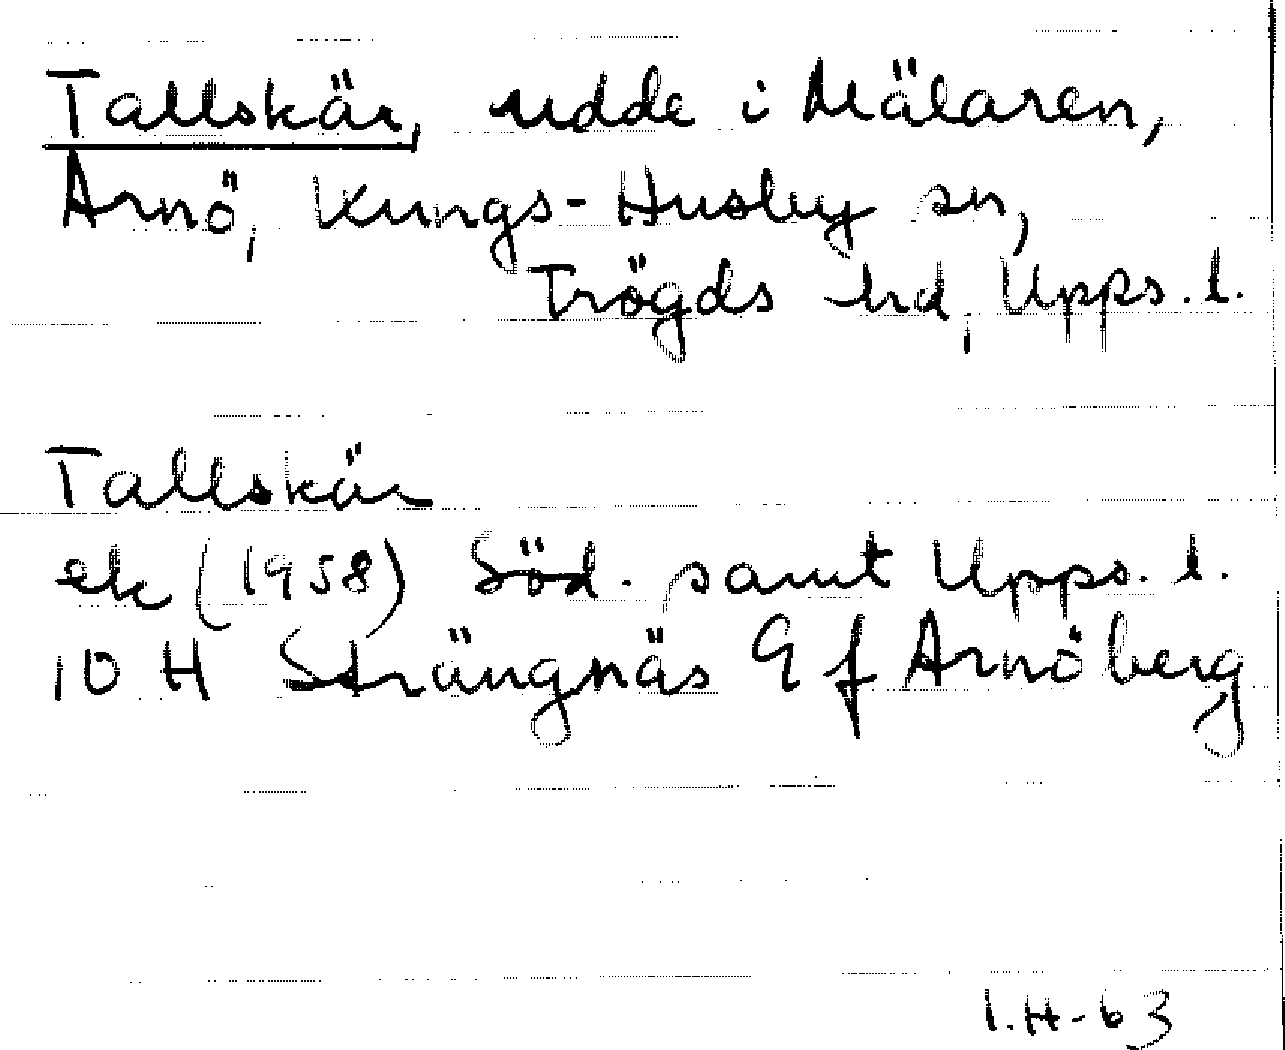 Tallskär, udde i Mälaren,
Arnö, Kungs-Husby sn,
Trögds hd, Upps. l.
Tallskär
ek (1958) Söd. samt Upps. l.
10 H Strängnäs 9 f Arnöberg
I.H-63